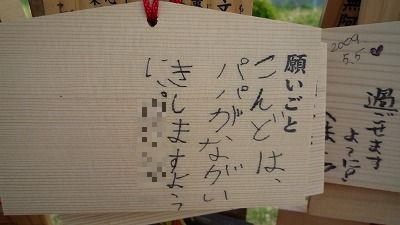 願いごと
こんどは、
パパが、ながい
きしますよう
に。
2009.
5.5
過ごせます
ように